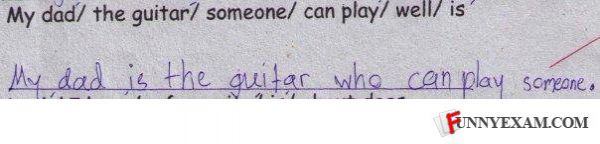 My dad/ the guitar/ someone/ can play/ well/ is
My dad is the guitar who can play someone.
FUNNYEXAM.COM